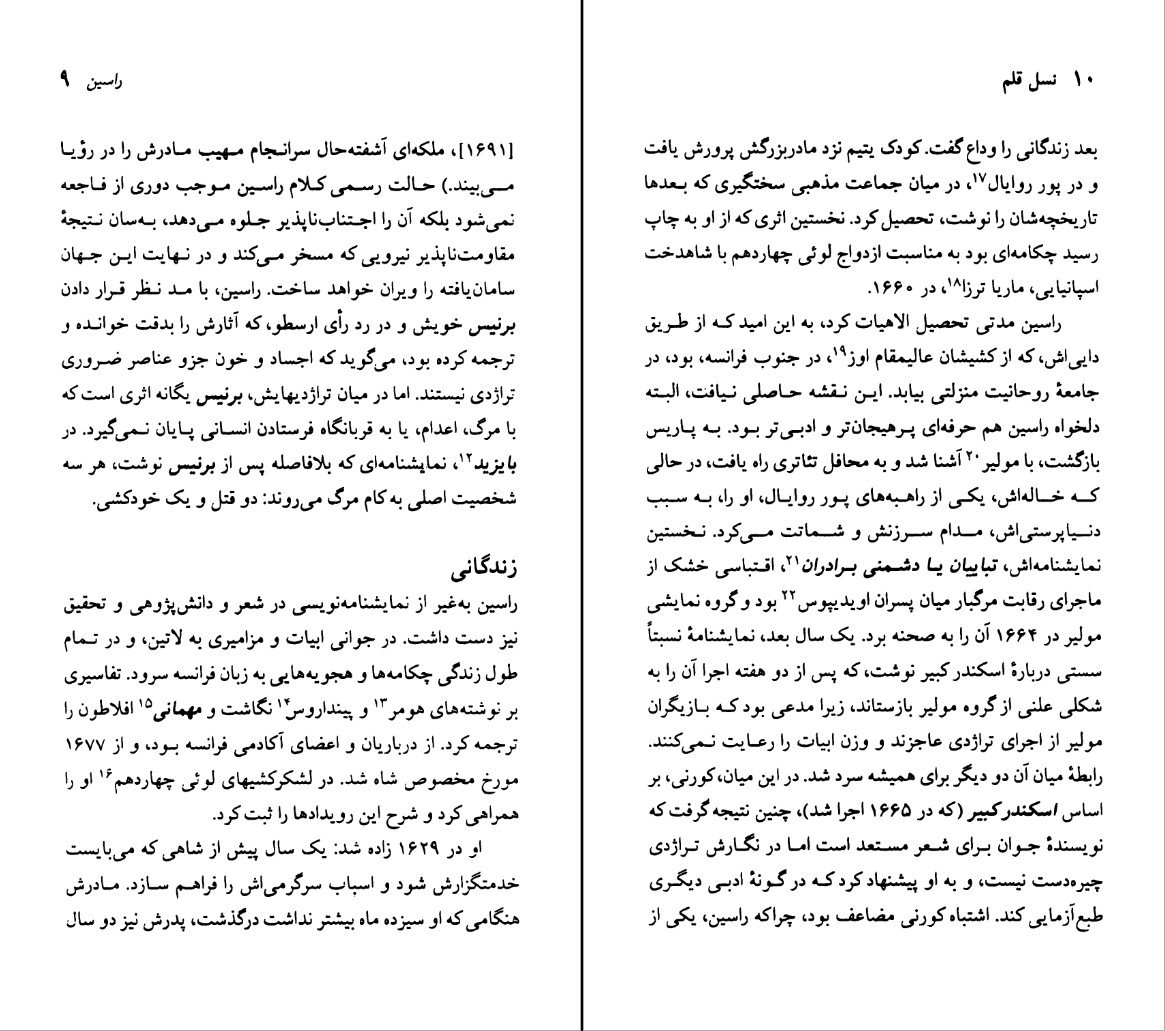 راسین ۹
[۱۶۹۱]، ملکه‌ای آشفته‌حال سرانجام مهیب مادرش را در رؤیا
می‌بیند.) حالت رسمی کلام راسین موجب دوری از فاجعه
نمی‌شود بلکه آن را اجتناب‌ناپذیر جلوه می‌دهد، به‌سان نتیجهٔ
مقاومت‌ناپذیر نیرویی که مسخر می‌کند و در نهایت این جهان
سامان‌یافته را ویران خواهد ساخت. راسین، با مد نظر قرار دادن
برنیس خویش و در رد رأی ارسطو، که آثارش را بدقت خوانده و
ترجمه کرده بود، می‌گوید که اجساد و خون جزو عناصر ضروری
تراژدی نیستند. اما در میان تراژدیهایش، برنیس یگانه اثری است که
با مرگ، اعدام، یا به قربانگاه فرستادن انسانی پایان نمی‌گیرد. در
بایزید۱۲، نمایشنامه‌ای که بلافاصله پس از برنیس نوشت، هر سه
شخصیت اصلی به کام مرگ می‌روند: دو قتل و یک خودکشی.
زندگانی
راسین به‌غیر از نمایشنامه‌نویسی در شعر و دانش‌پژوهی و تحقیق
نیز دست داشت. در جوانی ابیات و مزامیری به لاتین، و در تمام
طول زندگی چکامه‌ها و هجویه‌هایی به زبان فرانسه سرود. تفاسیری
بر نوشته‌های هومر۱۳ و پینداروس۱۴ نگاشت و مهمانی۱۵ افلاطون را
ترجمه کرد. از درباریان و اعضای آکادمی فرانسه بود، و از ۱۶۷۷
مورخ مخصوص شاه شد. در لشکرکشیهای لوئی چهاردهم۱۶ او را
همراهی کرد و شرح این رویدادها را ثبت کرد.
او در ۱۶۲۹ زاده شد: یک سال پیش از شاهی که می‌بایست
خدمتگزارش شود و اسباب سرگرمی‌اش را فراهم سازد. مادرش
هنگامی که او سیزده ماه بیشتر نداشت درگذشت، پدرش نیز دو سال
۱۰ نسل قلم
بعد زندگانی را وداع گفت. کودک یتیم نزد مادربزرگش پرورش یافت
و در پور روایال۱۷، در میان جماعت مذهبی سختگیری که بعدها
تاریخچه‌شان را نوشت، تحصیل کرد. نخستین اثری که از او به چاپ
رسید چکامه‌ای بود به مناسبت ازدواج لوئی چهاردهم با شاهدخت
اسپانیایی، ماریا ترزا۱۸، در ۱۶۶۰.
راسین مدتی تحصیل الاهیات کرد، به این امید که از طریق
دایی‌اش، که از کشیشان عالیمقام اوز۱۹، در جنوب فرانسه، بود، در
جامعهٔ روحانیت منزلتی بیابد. این نقشه حاصلی نیافت، البته
دلخواه راسین هم حرفه‌ای پرهیجان‌تر و ادبی‌تر بود. به پاریس
بازگشت، با مولیر۲۰ آشنا شد و به محافل تئاتری راه یافت، در حالی
که خاله‌اش، یکی از راهبه‌های پور روایال، او را، به سبب
دنیاپرستی‌اش، مدام سرزنش و شماتت می‌کرد. نخستین
نمایشنامه‌اش، تباییان یا دشمنی برادران۲۱، اقتباسی خشک از
ماجرای رقابت مرگبار میان پسران اویدیپوس۲۲ بود و گروه نمایشی
مولیر در ۱۶۶۴ آن را به صحنه برد. یک سال بعد، نمایشنامهٔ نسبتاً
سستی دربارهٔ اسکندر کبیر نوشت، که پس از دو هفته اجرا آن را به
شکلی علنی از گروه مولیر بازستاند، زیرا مدعی بود که بازیگران
مولیر از اجرای تراژدی عاجزند و وزن ابیات را رعایت نمی‌کنند.
رابطهٔ میان آن دو دیگر برای همیشه سرد شد. در این میان، کورنی، بر
اساس اسکندر کبیر (که در ۱۶۶۵ اجرا شد)، چنین نتیجه گرفت که
نویسندهٔ جوان برای شعر مستعد است اما در نگارش تراژدی
چیره‌دست نیست، و به او پیشنهاد کرد که در گونهٔ ادبی دیگری
طبع‌آزمایی کند. اشتباه کورنی مضاعف بود، چراکه راسین، یکی از